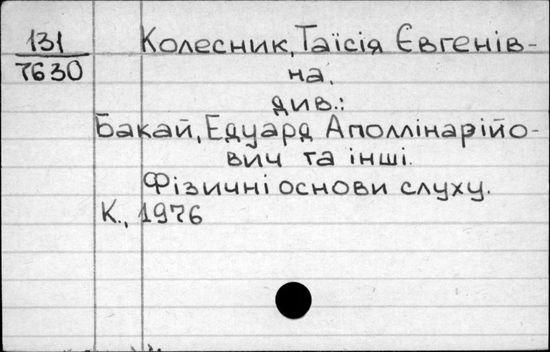 131
7630
Колесник, Таїсія Євгенів-
на.
див.:
Бакай, Едуард Аполлінарійо-
вич та інші.
Фізичні основи слуху.
К., 1976